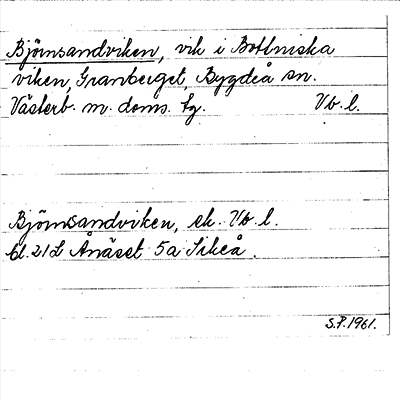 Björnsandviken, vik i Bottniska
viken, Granberget, Bygdeå sn.
Västerb. m. doms. tg. Vb. l.
Björnsandviken, ek. Vb. l.
bl. 21 L Ånäset 5a Sikeå.
S.P. 1961.